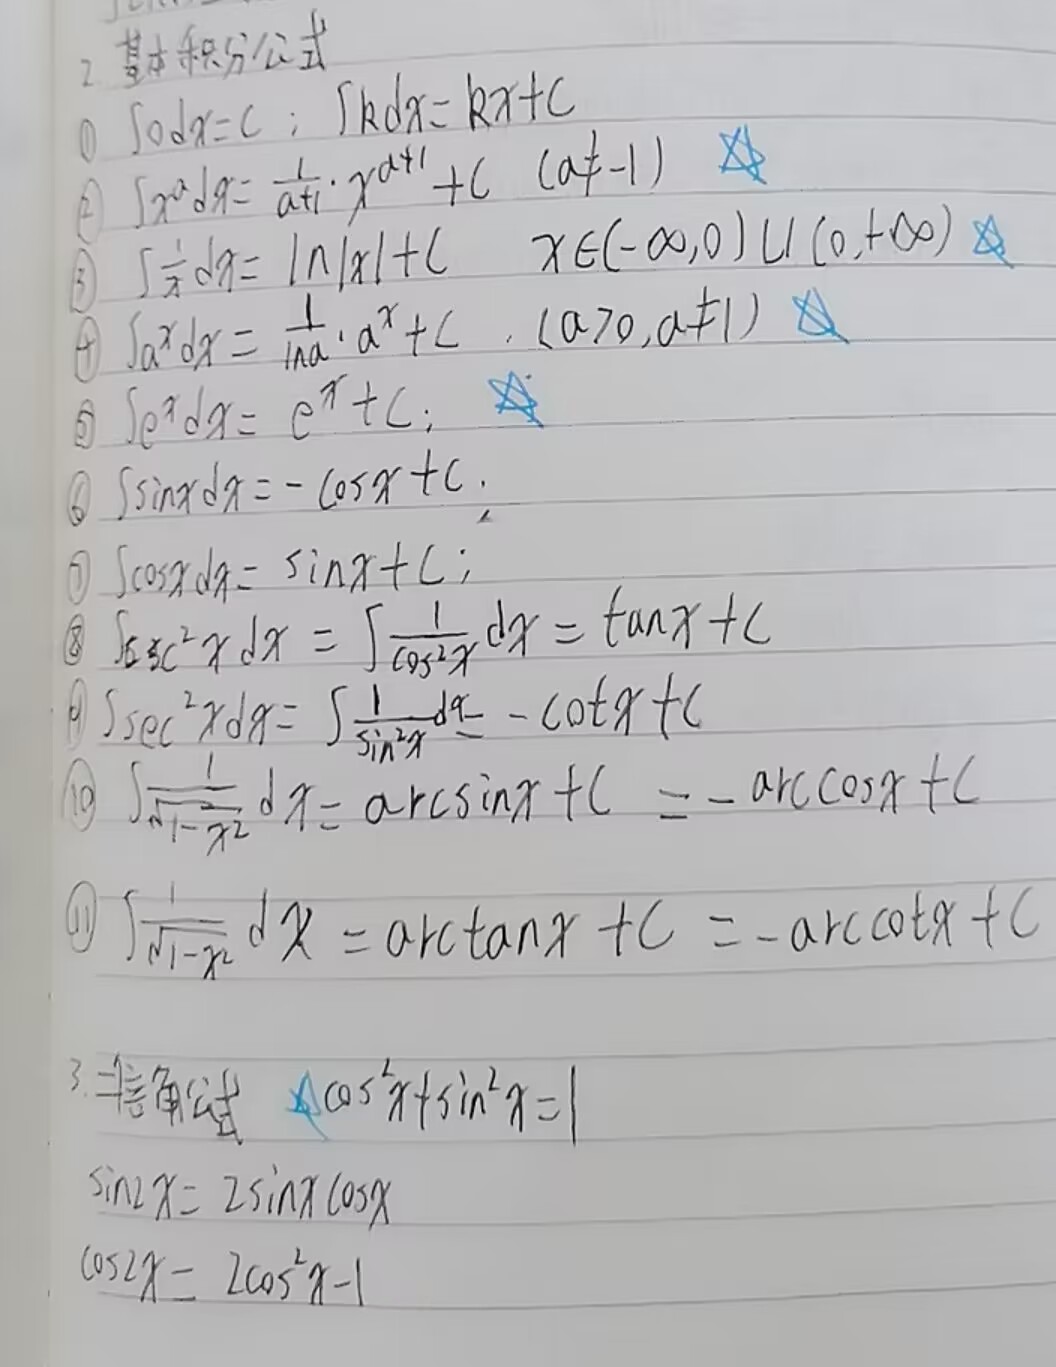 2. 基本积分公式
① ∫0dx=C; ∫kdx=kx+C
② ∫xᵃdx= 1/(a+1)·xᵃ⁺¹+C (a≠-1) ☆
③ ∫1/x dx= ln|x|+C x∈(-∞,0)∪(0,+∞) ☆
④ ∫aˣdx= 1/lna·aˣ+C. (a>0,a≠1) ☆
⑤ ∫eˣdx= eˣ+C; ☆
⑥ ∫sinxdx=-cosx+C.
⑦ ∫cosxdx= sinx+C;
⑧ ∫sec²xdx = ∫1/cos²x dx = tanx+C
⑨ ∫sec²xdx= ∫1/sin²x dx= -cotx+C
⑩ ∫1/√(1-x²) dx= arcsinx+C =-arccosx+C
⑪ ∫1/√(1-x²) dx = arctanx+C =-arccotx+C
3. 二倍角公式 ☆cos²x+sin²x=1
sin2x= 2sinxcosx
cos2x= 2cos²x-1